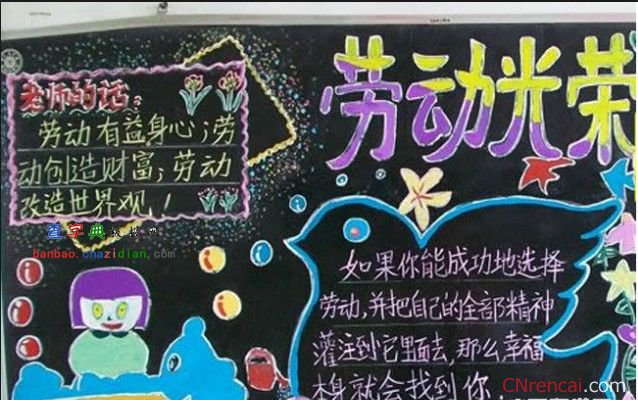 劳动光荣
老师的话：
劳动有益身心；劳
动创造财富；劳动
改造世界观！
查字典
banbao.chazidian.com
如果你能成功地选择
劳动，并把自己的全部精神
灌注到它里面去，那么幸福
本身就会找到你，
CNrencai.com